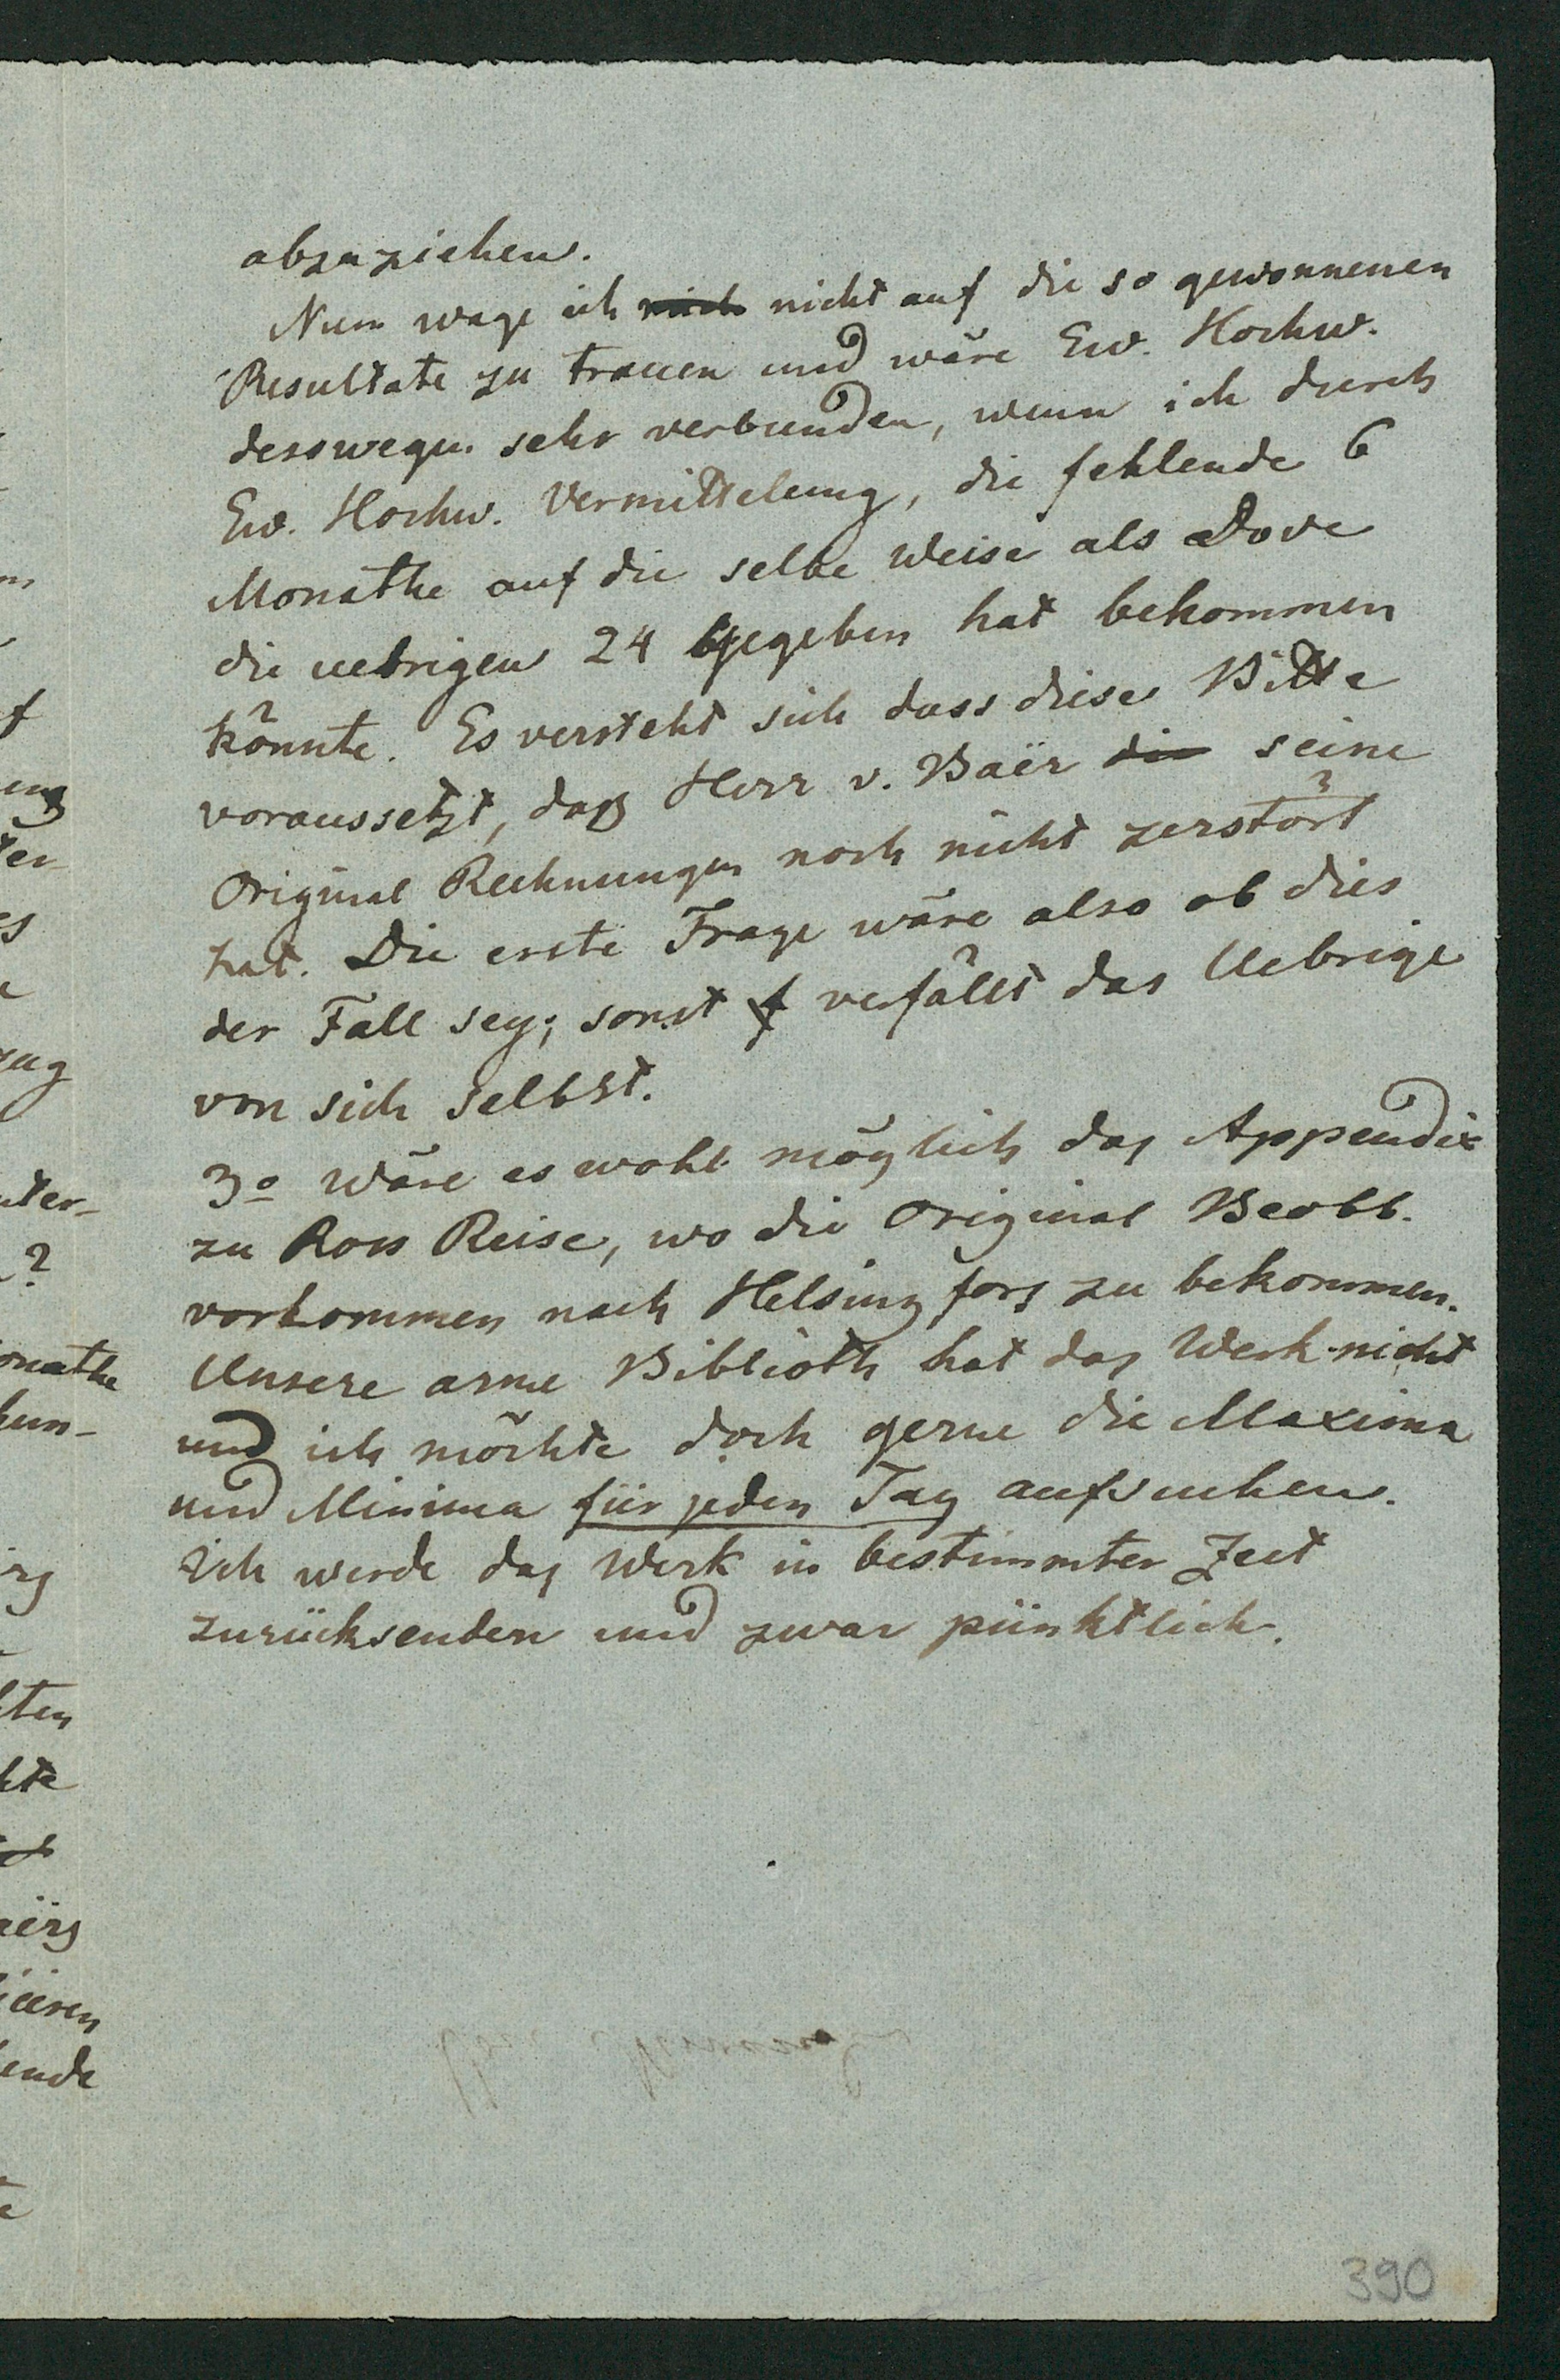 abzuziehen.
Nun wage ich mich nicht auf die so gewonnenen
Resultate zu trauen und wäre Ew. Hochw.
desswegen sehr verbunden, wenn ich durch
Ew. Hochw. Vermittelung, die fehlende 6
Monathe auf die selbe Weise als Dove
die uebrigen 24 gegeben hat bekommen
könnte. Es versteht sich dass diese Bitte
voraussetzt, daß Herr v. Baër die seine
Original Rechnungen noch nicht zerstört
hat. Die erste Frage wäre also ob dies
der Fall sey; sonst f verfällt das Uebrige
von sich selbst.
3o Wäre es wohl möglich das Appendix
zu Ross Reise, wo die Original Beobb.
vorkommen nach Helsingfors zu bekommen.
Unsere arme Biblioth hat das Werk nicht
und ich möchte doch gerne die Maxima
und Minima für jeden Tag aufsuchen.
Ich werde das Werk in bestimmter Zeit
zurücksenden und zwar pünktlich.
390